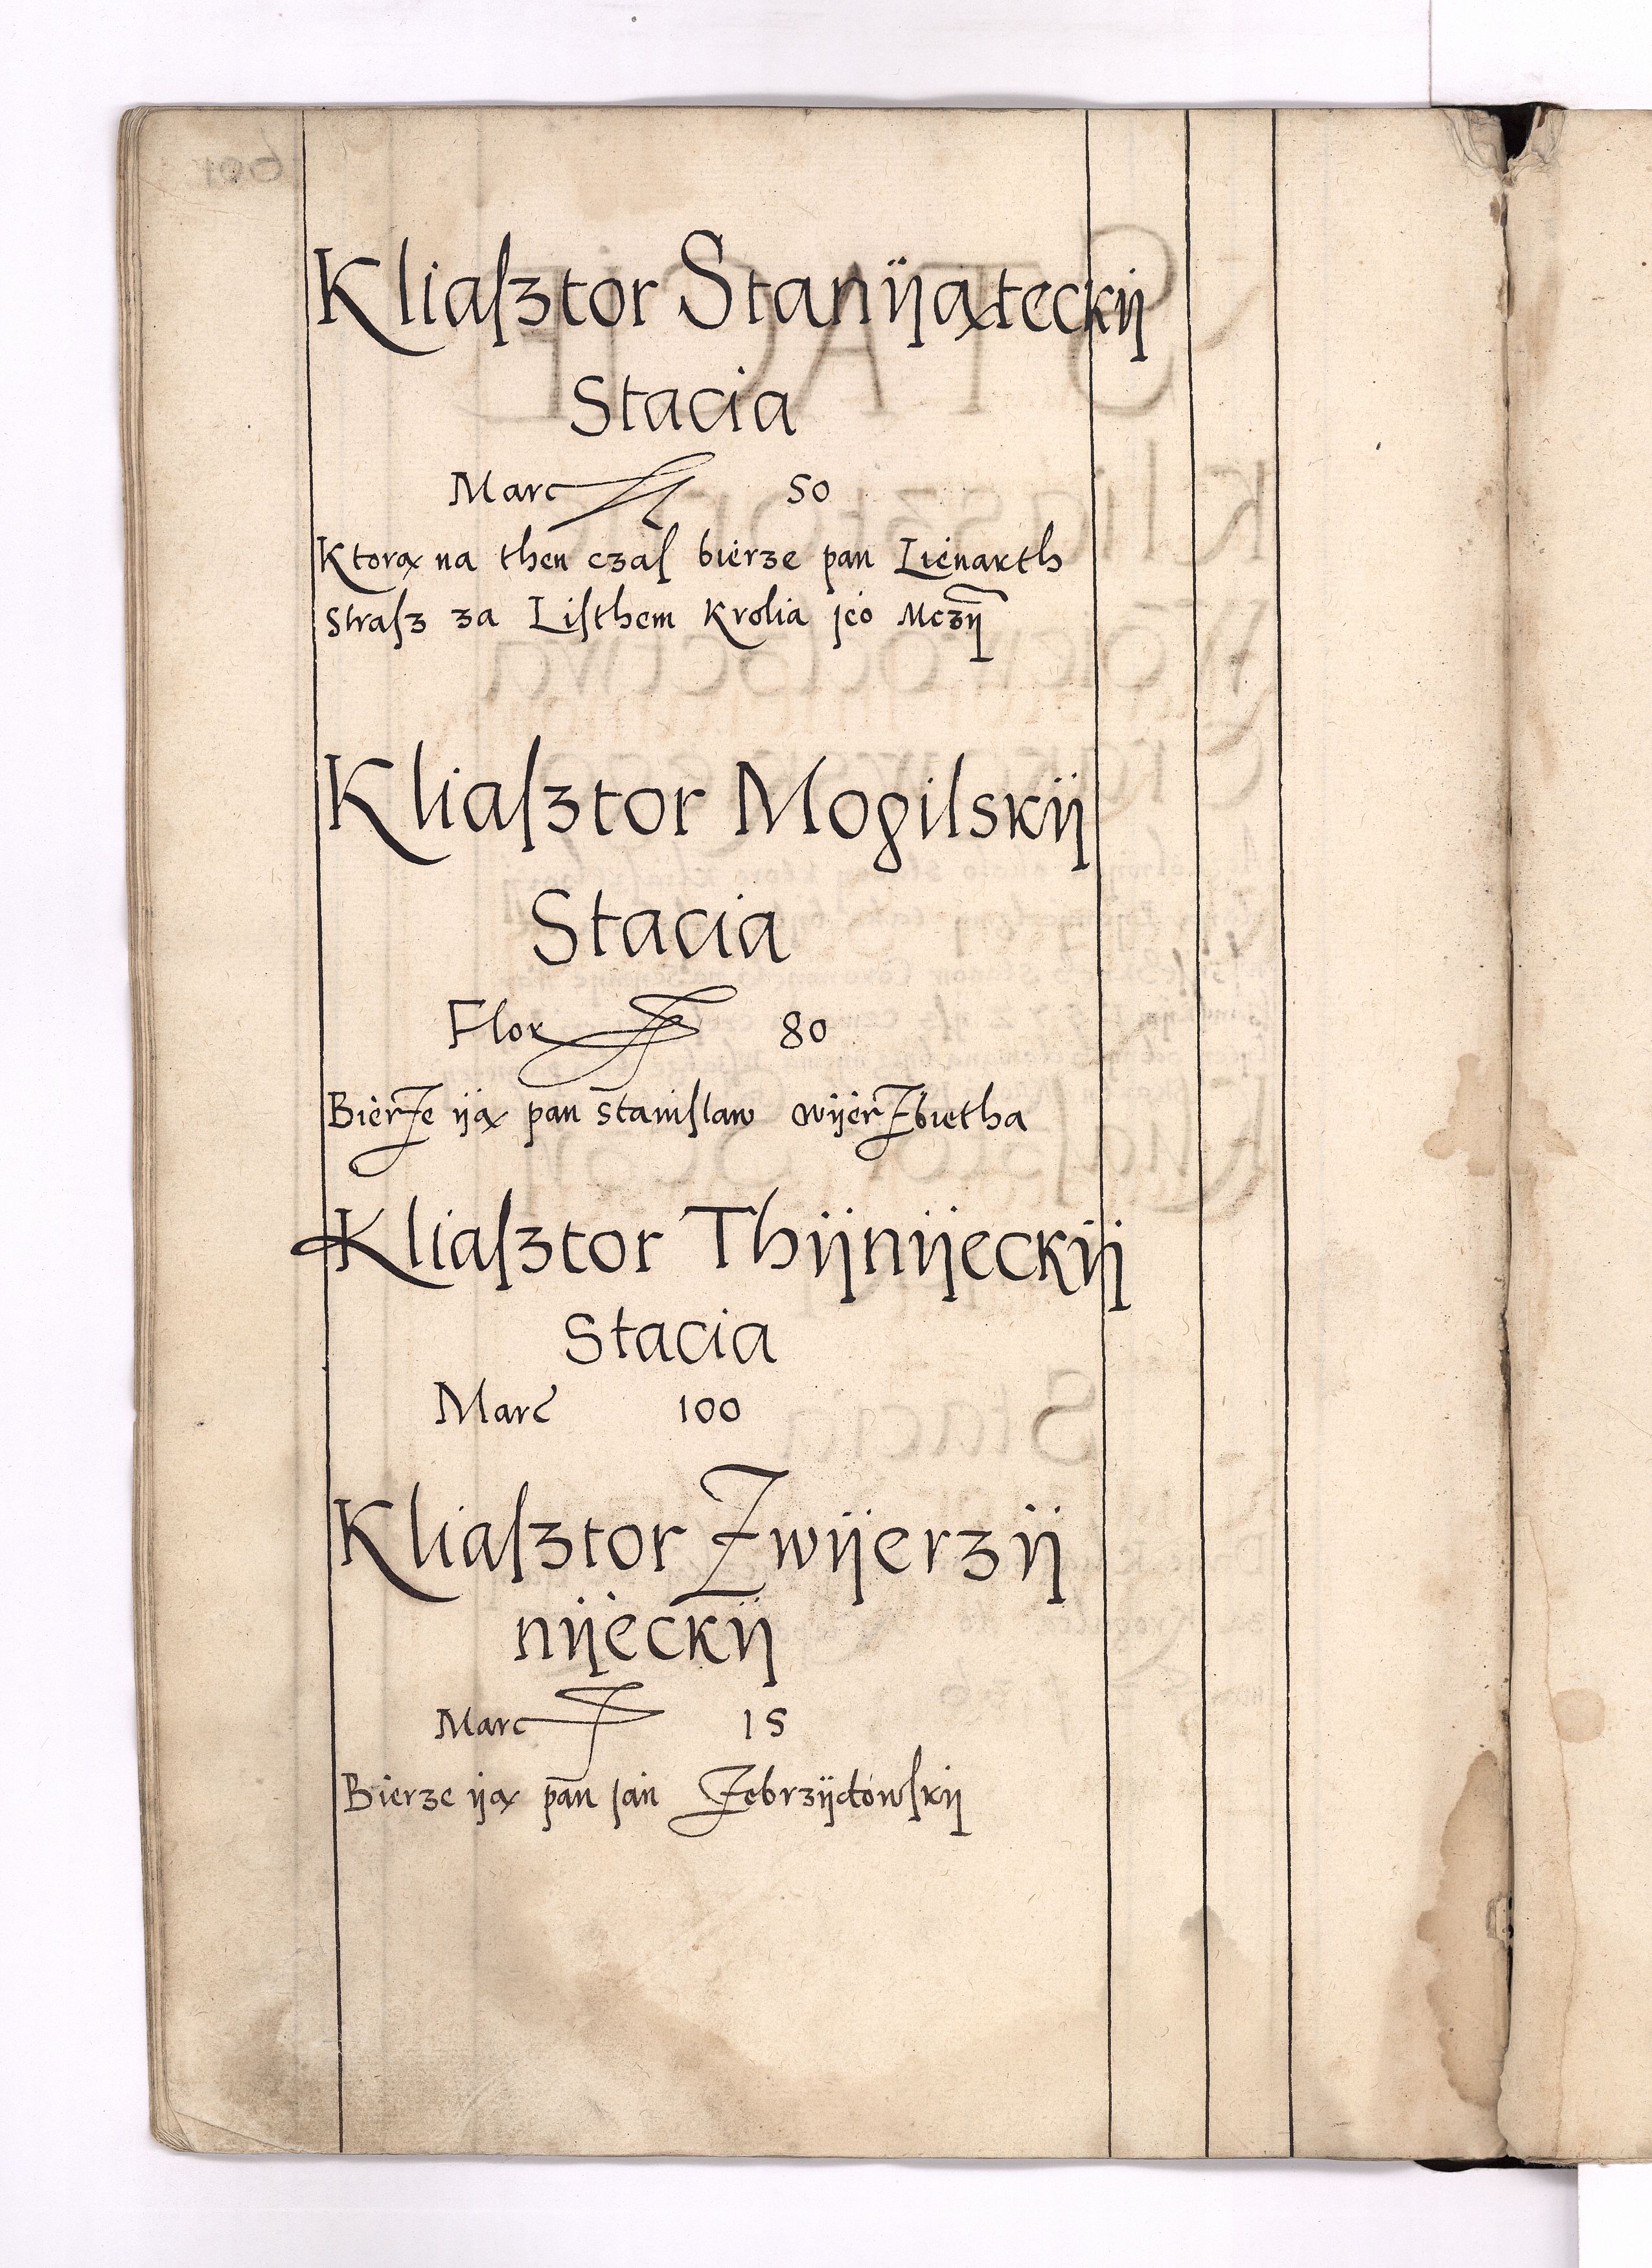 Kliaſztor Stanÿąteckÿ
Stacia
Marc 50
Ktorą na then czaſ bierze pan Lienarth
Straſz za Liſthem Krolia jeo Mczÿ
Kliaſztor Mogilskÿ
Stacia
Flor 80
Bierze ÿą pan Staniſlaw Wÿerzbietha
Kliaſztor Thÿnÿeckÿ
Stacia
Marc 100
Kliaſztor Zwÿerzÿ
nÿeckÿ
Marc 15
Bierze ÿą pan Jan Zebrzÿdowſkÿ